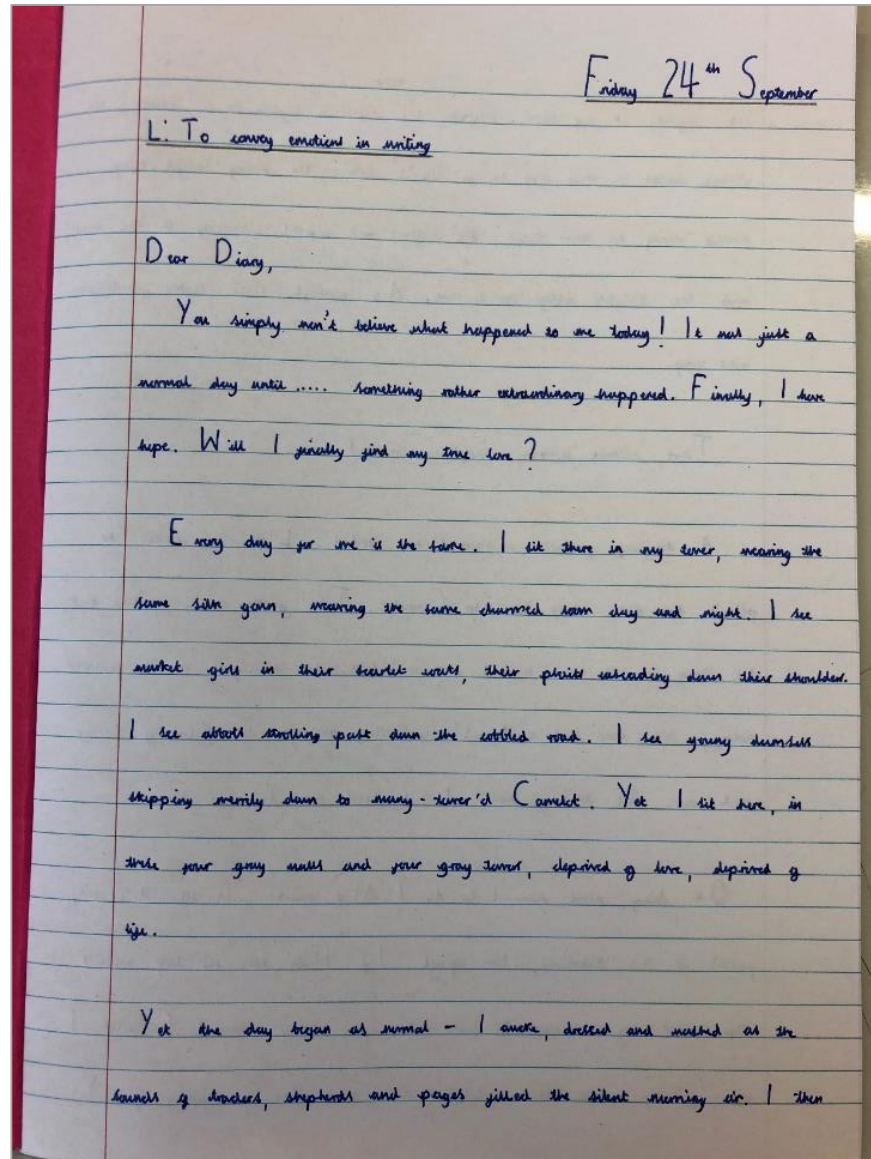 Friday 24th September
L: To convey emotions in writing
Dear Diary,
You simply won't believe what happened to me today! It was just a
normal day until ..... something rather extraordinary happened. Finally, I have
hope. Will I finally find my true love?
Every day for me is the same. I sit there in my tower, wearing the
same silk gown, weaving the same charmed day and night. I see
market girls in their scarlet coats, their plaits cascading down their shoulders.
I see abbots strolling past down the cobbled road. I see young damsels
skipping merrily down to many-tower'd Camelot. Yet I sit here, in
these four gray walls and four gray towers, deprived of love, deprived of
life.
Yet the day began as normal - I awoke, dressed and washed as the
sounds of traders, shepherds and pages filled the silent morning air. I then